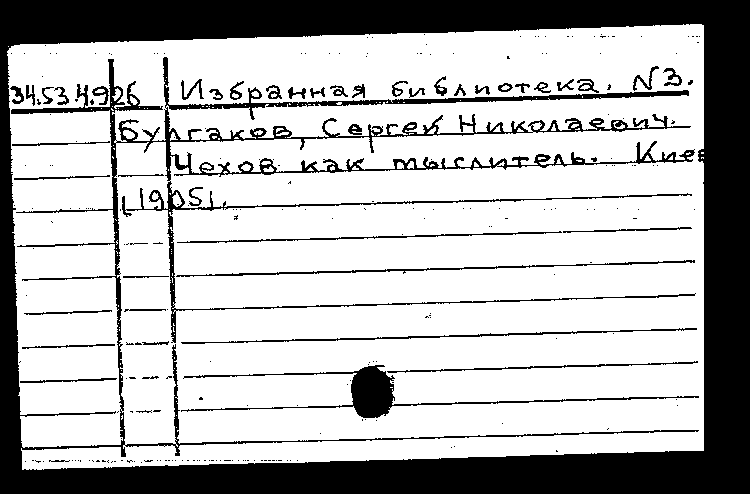 34.53.4.926 Избранная библиотека. N3.
Булгаков, Сергей Николаевич.
Чехов как мыслитель. Киев
[1905].